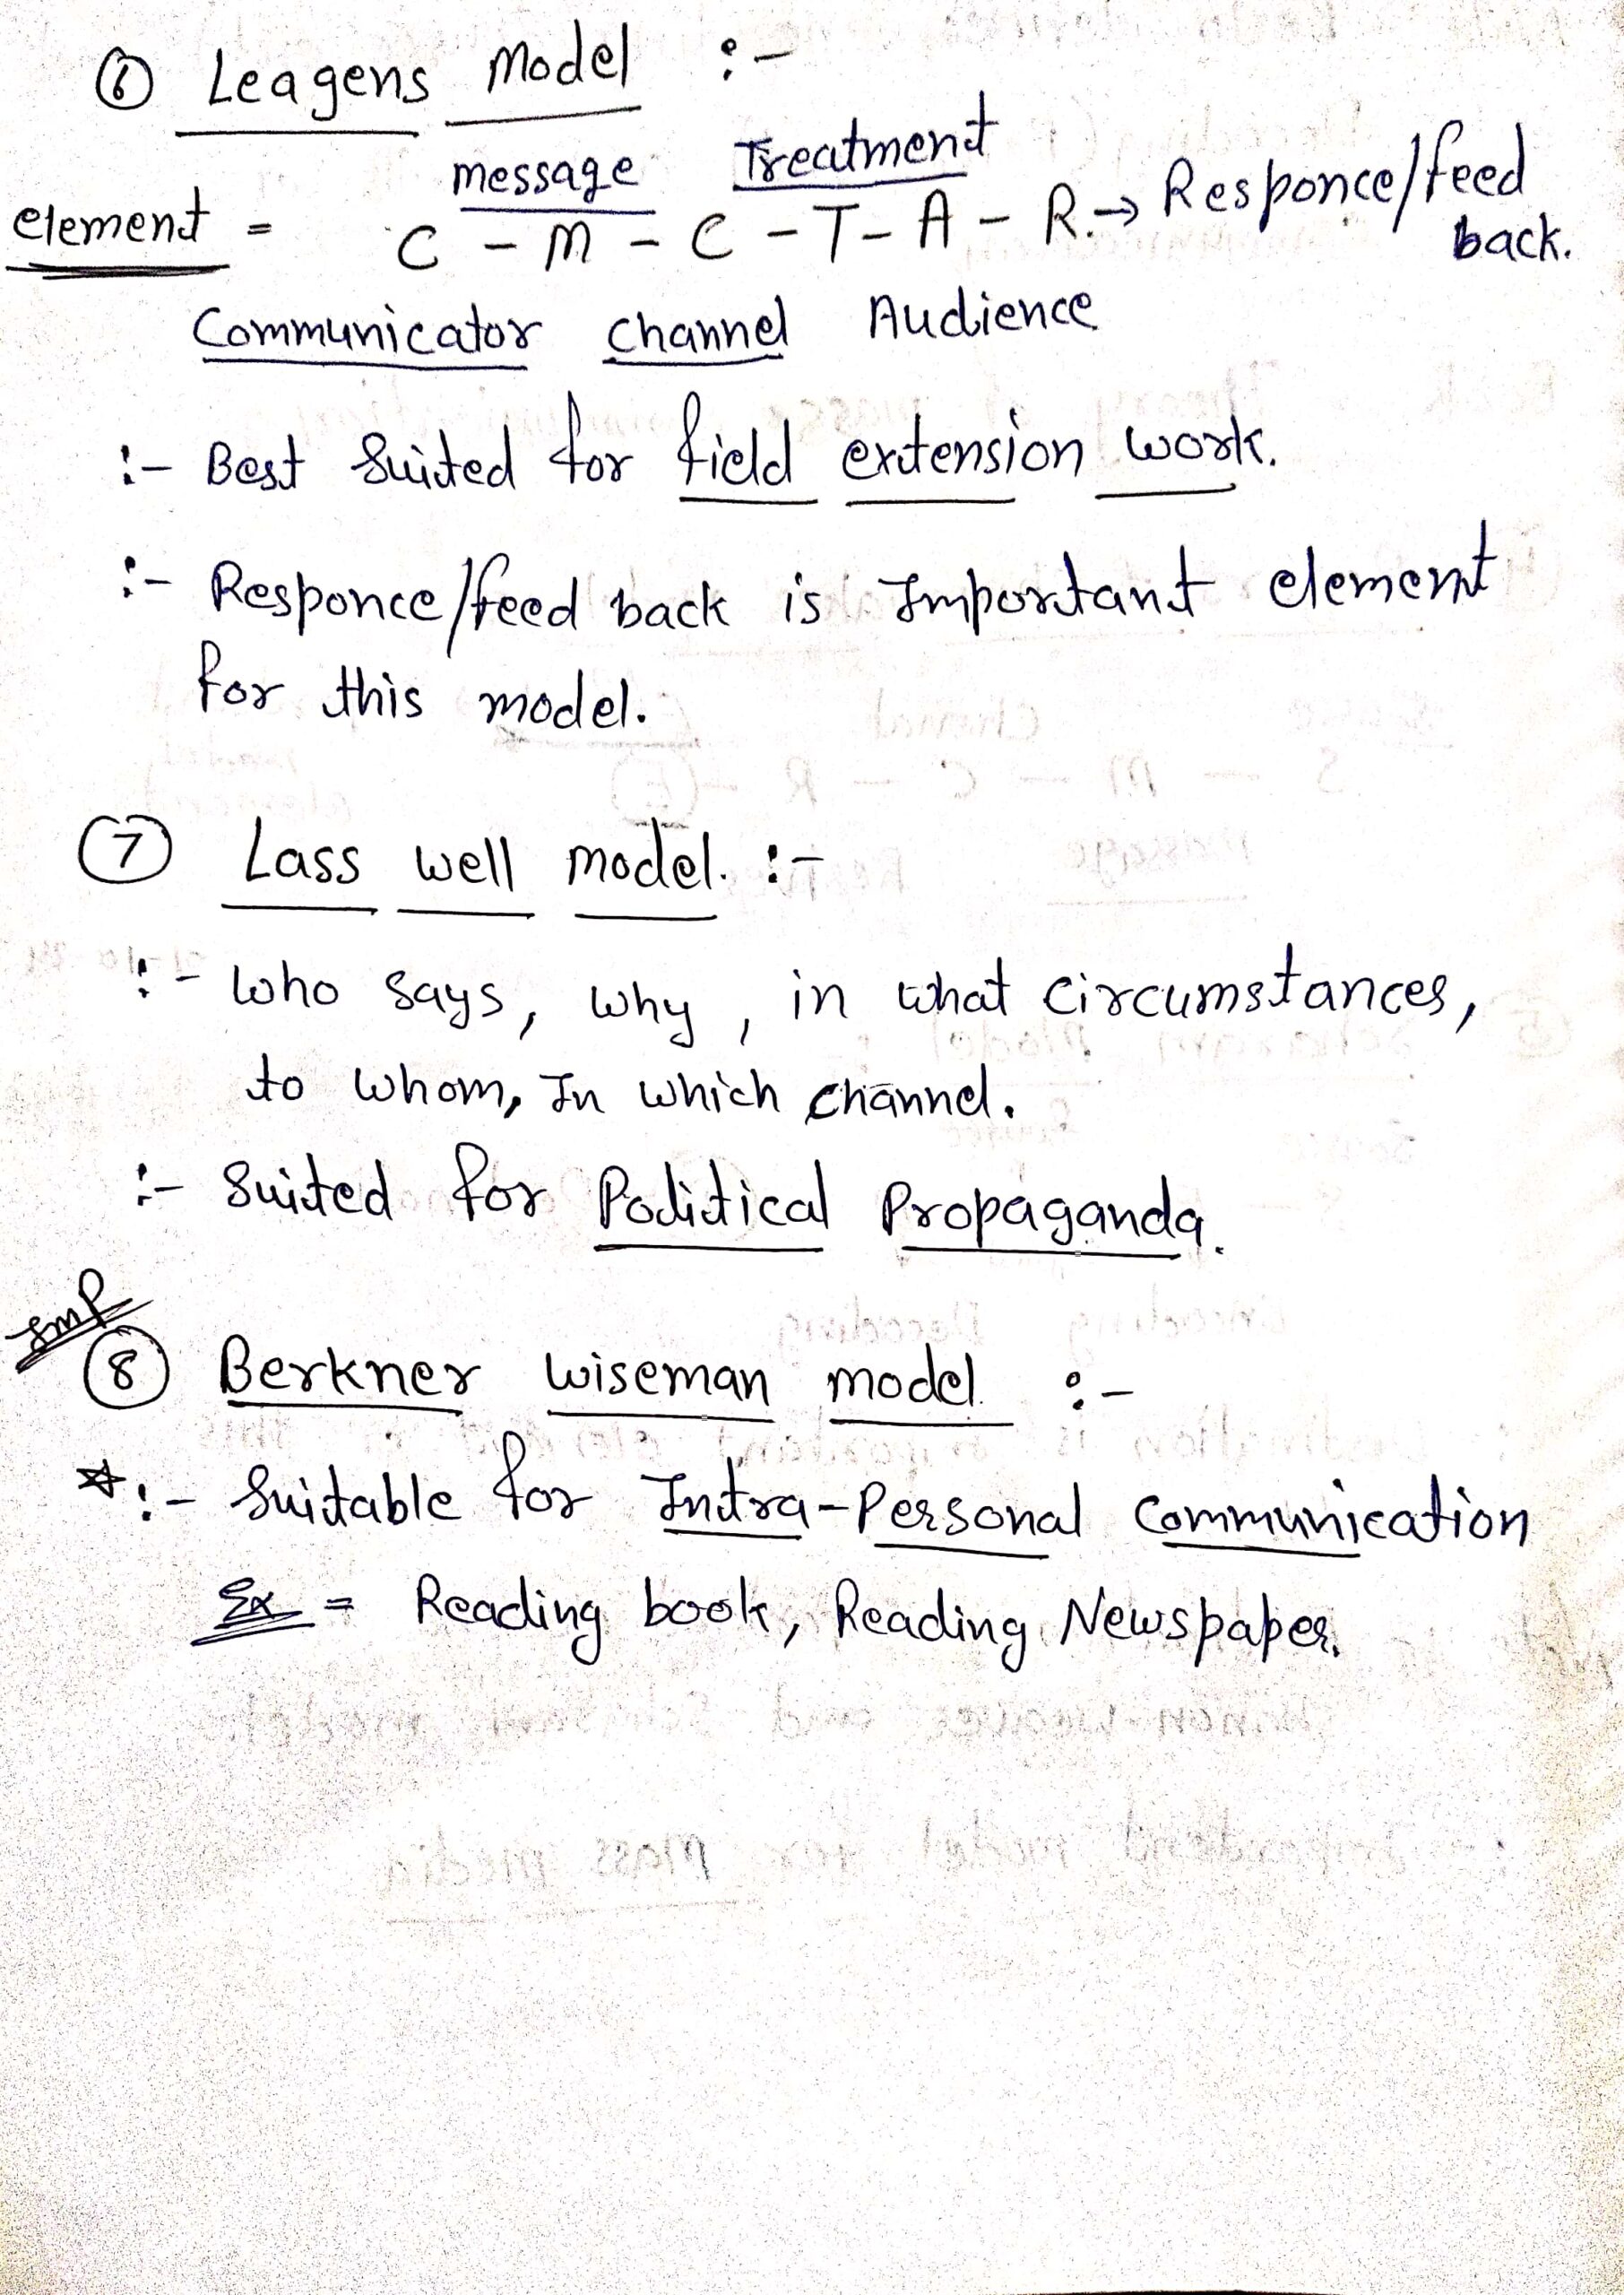 ⑥ Leagens Model :-
message Treatment
element = C - M - C - T - A - R. → Responce/feed back.
Communicator channel Audience
:- Best Suited for field extension work.
:- Responce/feed back is Important element
for this model.
⑦ Lass well Model. :-
:- Who says, why, in what circumstances,
to whom, In which channel.
:- Suited for Political Propaganda.
Imp
⑧ Berkner wiseman model :-
☆ :- Suitable for Intra-Personal Communication
Ex = Reading book, Reading Newspaper.